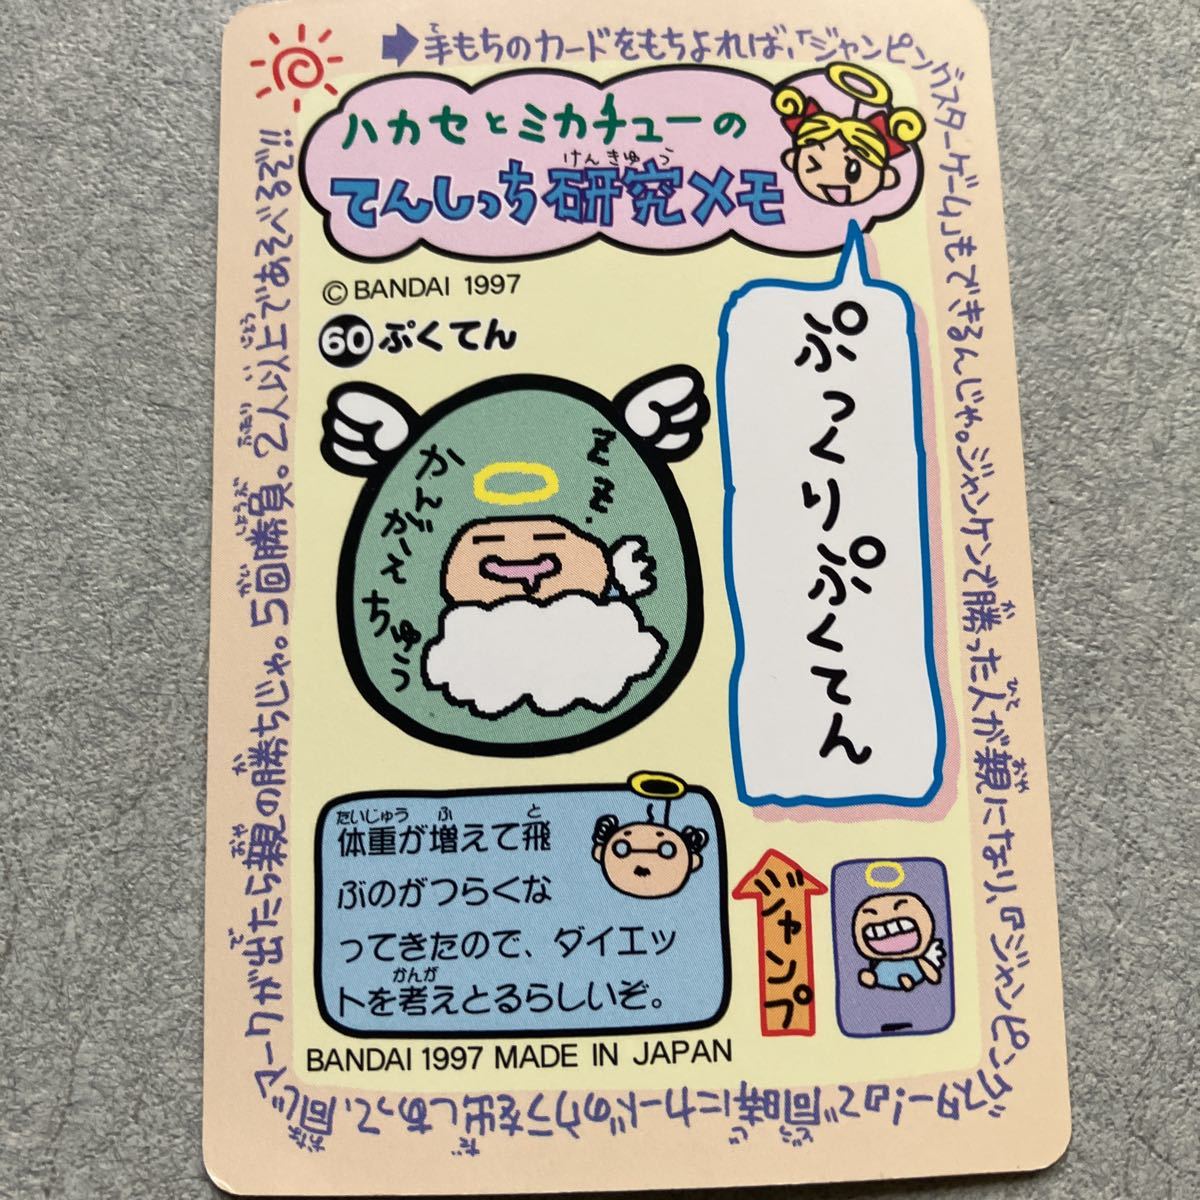 ➡手もちのカードをもちよれば、『ジャンピングスターゲーム』もできるんじゃ。ジャンケンで勝った人が親になり、『ジャンピングスター!』で同時にカードのウラを出しあって、同じマークが出たら親の勝ちじゃ。5回勝負。2人以上であそべるぞ!!
ハカセとミカチューの
けんきゅう
てんしっち研究メモ
©BANDAI 1997
60 ぷくてん
ぷっくりぷくてん
かんがえちゅう
たいじゅう ふ と
体重が増えて飛
ぶのがつらくな
ってきたので、ダイエッ
かんが
トを考えとるらしいぞ。
ジャンプ
BANDAI 1997 MADE IN JAPAN